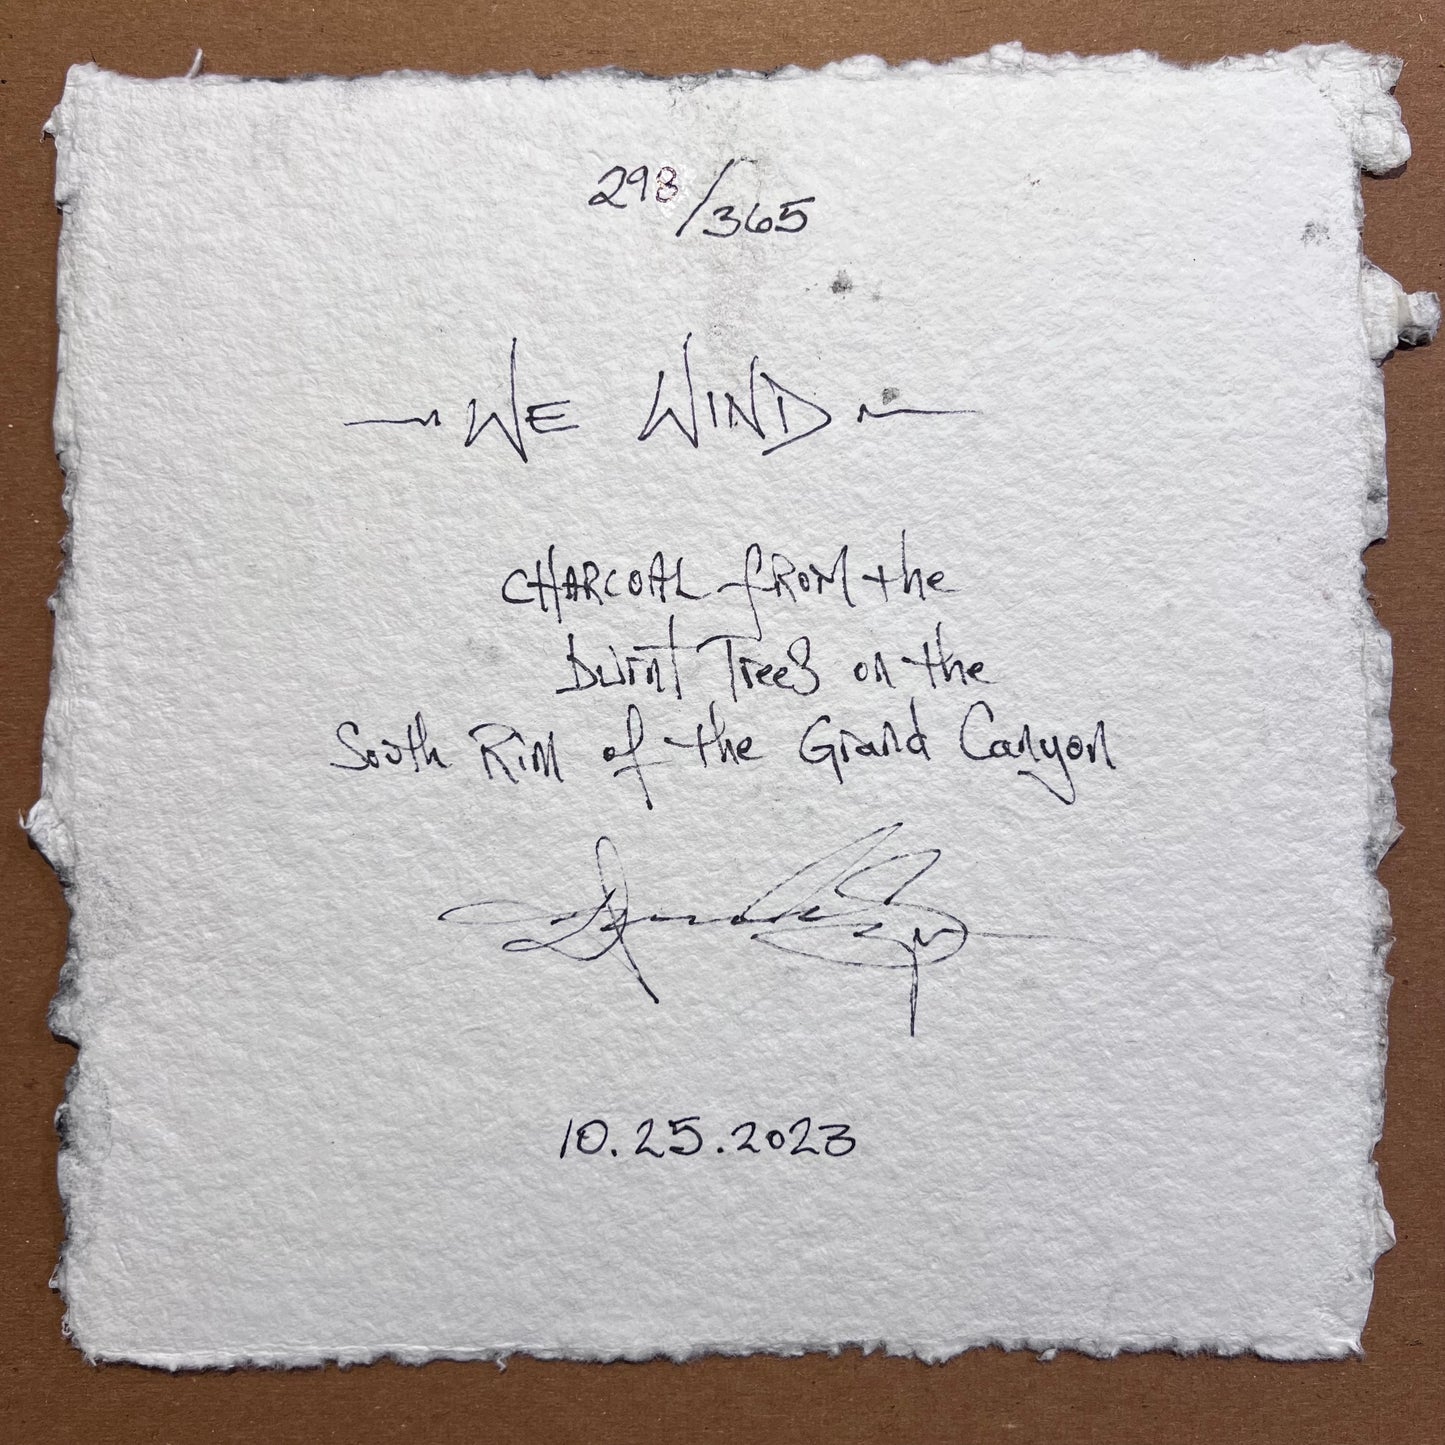 298/365
WE WIND
CHARCOAL fROM the
Burnt Trees on the
South Rim of the Grand Canyon
10.25.2023